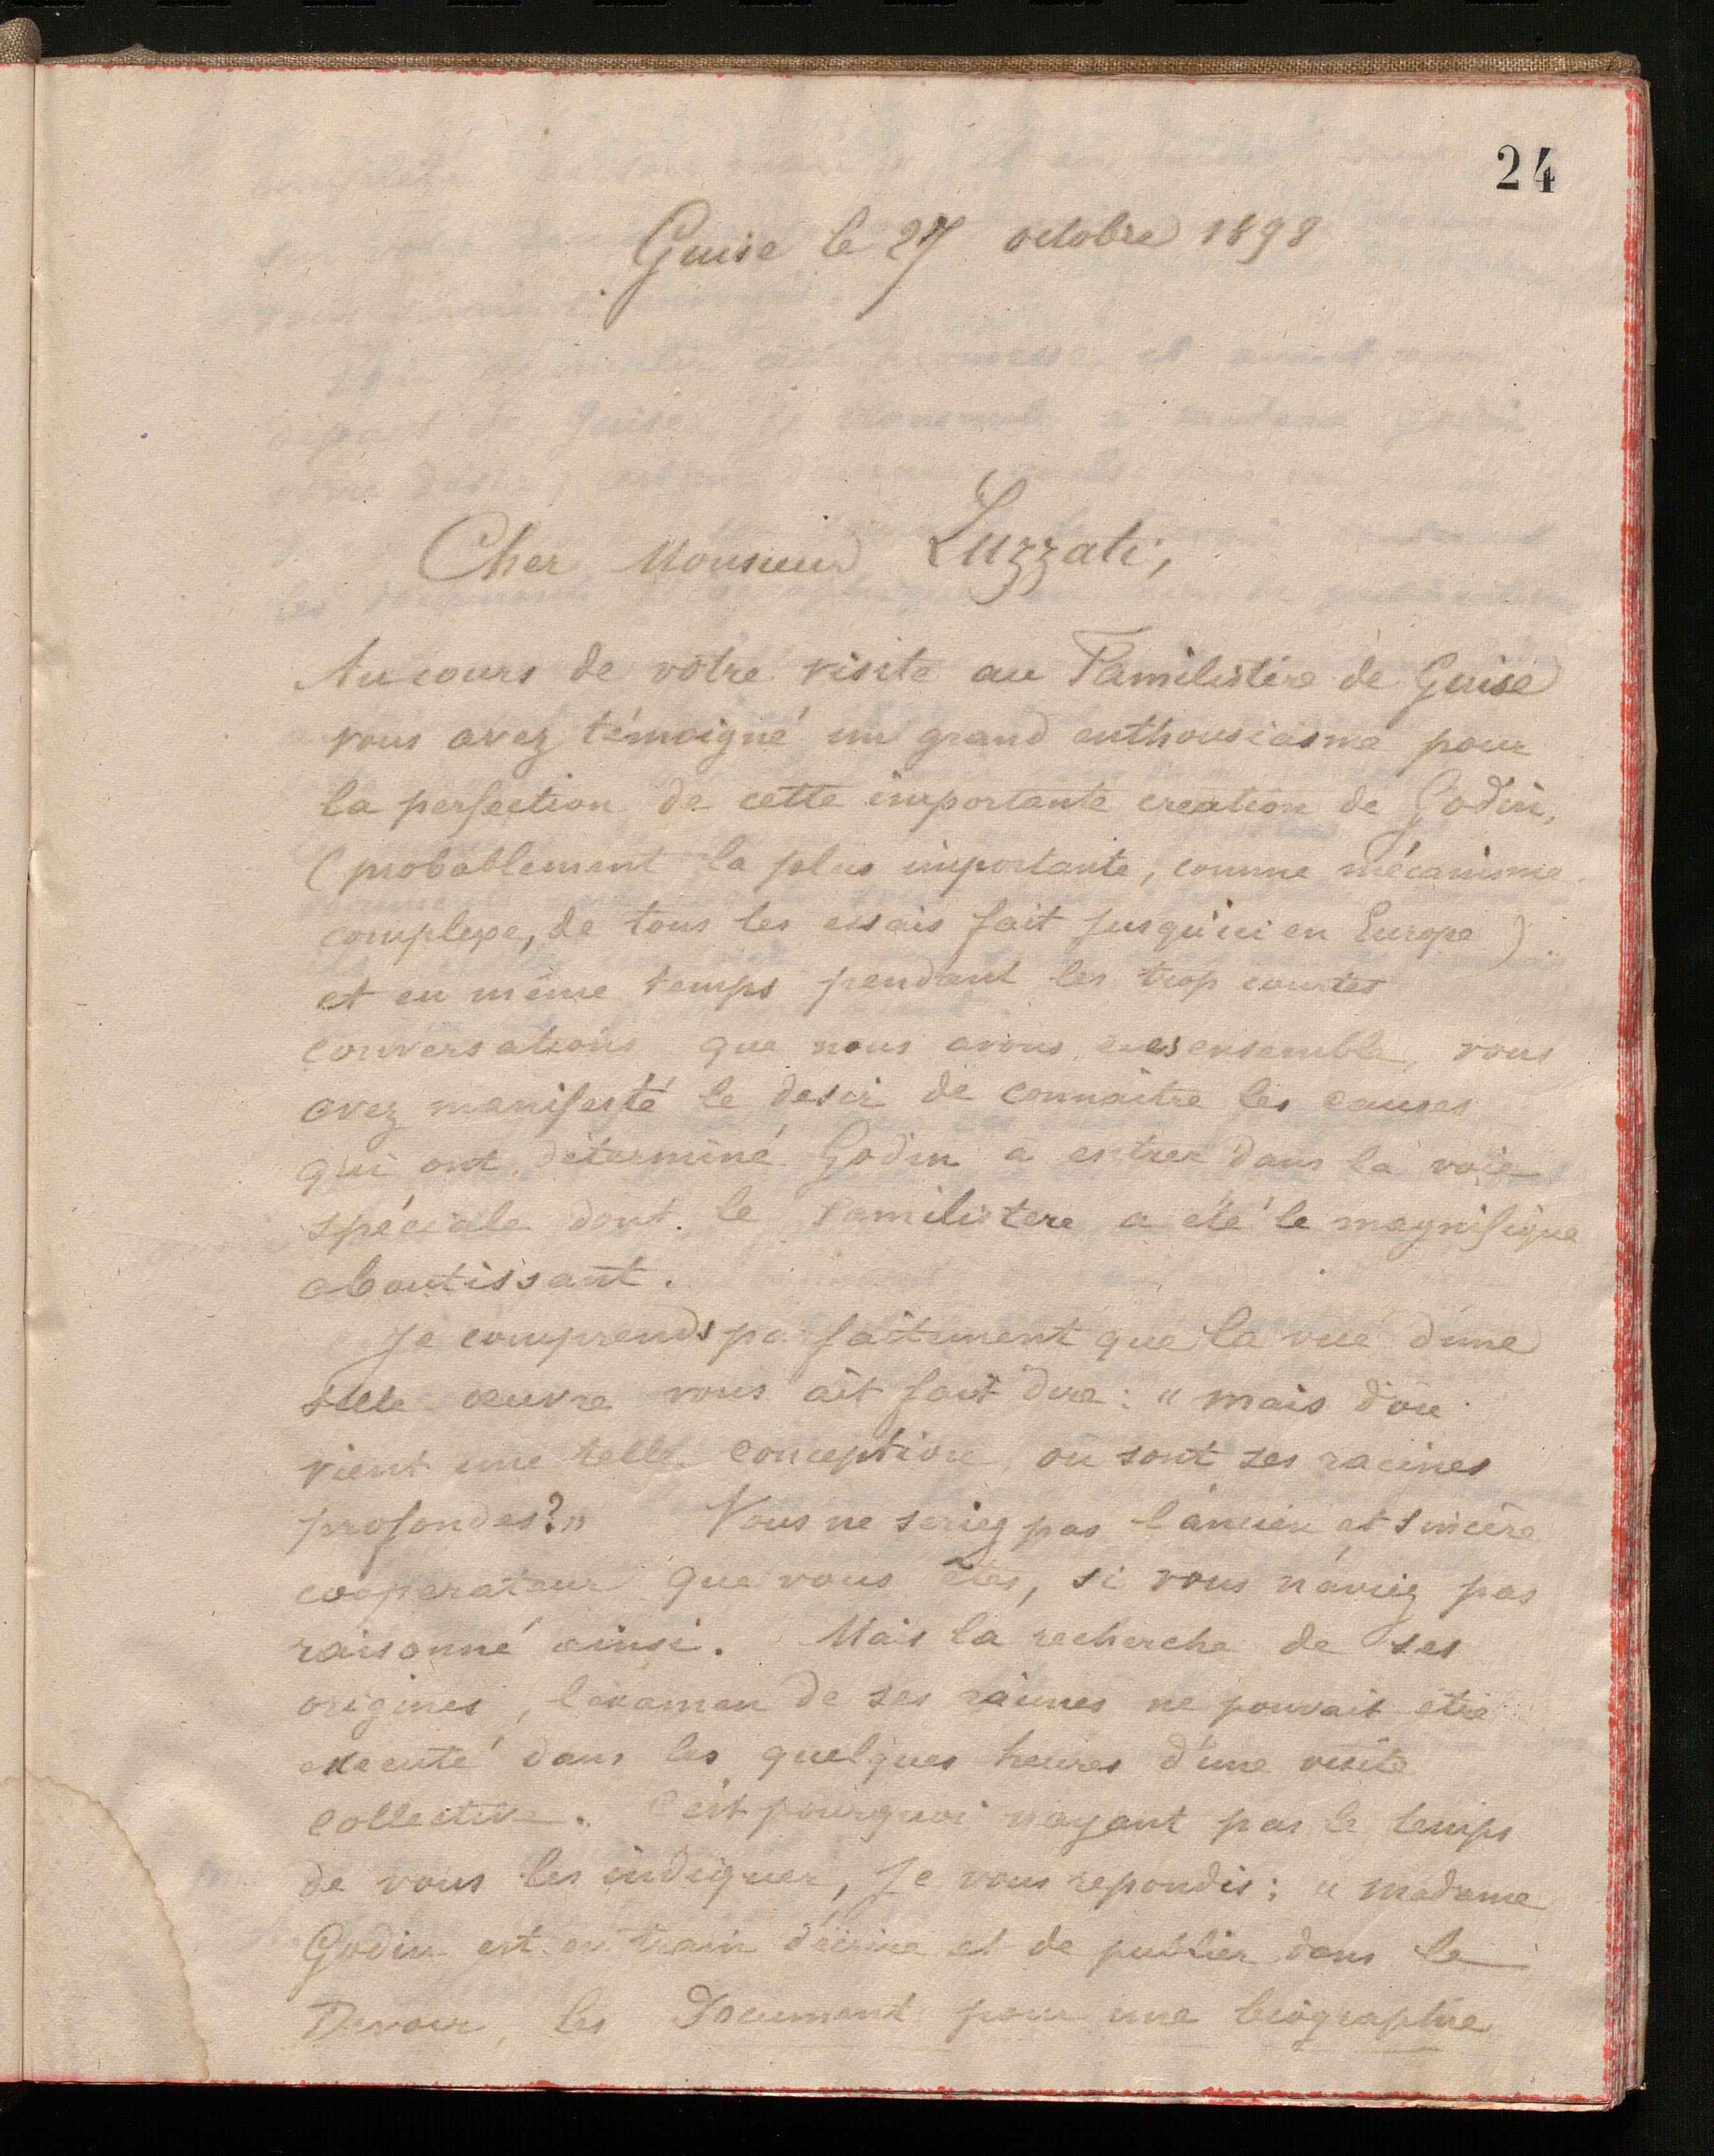 24
Guise le 27 octobre 1898
Cher Monsieur Luzzati,
Au cours de votre visite au Familistère de Guise
vous avez témoigné un grand enthousiasme pour
la perfection de cette importante creation de Godin,
(probablement la plus importante, comme mécanisme
complexe, de tous les essais fait jusqu'ici en Europe).
et en même temps pendant les trop courtes
conversations que nous avons eues ensemble, vous
avez manifesté le desir de connaitre les causes
qui ont déterminé Godin a entrer dans la voie
spéciale dont le Familistere a été le magnifique
aboutissant.
Je comprends parfaitement que la vue d'une
telle œuvre vous ait fait dire: "mais d'ou
vient une telle conception, ou sont ses racines
profondes?" Vous ne seriez pas l'ancien et sincère
coopérateur que vous êtes, si vous n'aviez pas
raisonné ainsi. Mais la recherche de ses
origines, l'examen de ses racines ne pouvait etre
executé dans les quelques heures d'une visite
collective. C'est pourquoi n'ayant pas le temps
de vous les indiquer, je vous repondis: "madame
Godin est en train d'écrire et de publier dans le
Devoir, les Document pour une biographie